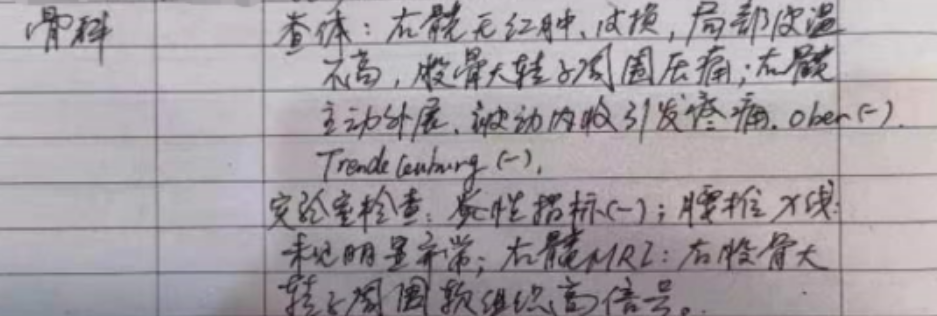 骨科
查体：右髋无红肿、皮损，局部皮温
不高，股骨大转子周围压痛；右髋
主动外展、被动内收引发疼痛．Ober(-)．
Trendelenburg(-)．
实验室检查：炎性指标(-)；腰椎X线：
未见明显异常；右髋MRI：右股骨大
转子周围软组织高信号。